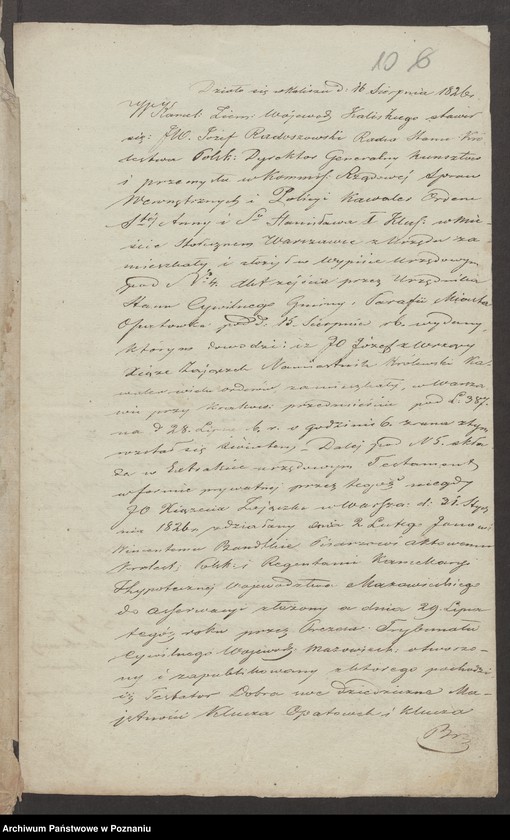 10 6
Działo się w Kaliszu d. 16 Sierpnia 1826 r.
Ziem: Wojewodz: Kaliskiego stawił
się: JW. Jozef Radoszewski Radca Stanu Kró
lestwa Polsk: Dyrektor Generalny kunsztów
i przemysłu w Kommiss: Rządowej Spraw
Wewnętrznych i Policyi Kawaler Orderu
Stej Anny i Sgo Stanisława I Klas: w Mie
ście Stołecznem Warszawie z Urzędu za
mieszkały i złożył w wypisie Urzędowym
pod No 4. Akt zejścia przez Urzędnika
Stanu Cywilnego Gminy i Parafii Miasta
Opatówka pod d. 15. Sierpnia rb. wydany,
którym dowodzi: iż JO Józef
Xiąże Zajączek Namiestnik Królewski Ka
waler wielu orderów zamieszkały w Warsza
wie przy krakow: przedmieściu pod L. 387.
na d 28. Lipca b. r. o godzinie 6. zrana
rozstał się z światem, Dalej pod N 5. skła
da w Extrakcie urzędowym Testament
w formie prywatnej przez tegoż niegdy
JO Xiązęcia Zajączka w Warsza: d: 31. Stycz
nia 1826 r. zdziałany dnia 2 Lutego Janowi
Wincentemu Bandtkie Pisarzowi Aktowemu
Królest: Polsk: i Regentowi Kancellaryi
Hypotecznej Województwa Mazowieckiego
do asserwacyi złożony a dnia 29. Lipca
tegóż roku przez Prezesa Trybunału
Cywilnego Wojewodz: Mazowieck: otworzo-
ny i zapublikowany z którego pochodzi
iż Testator Dobra swe dziedziczne Ma-
jętności Klucza Opatowek i klucza